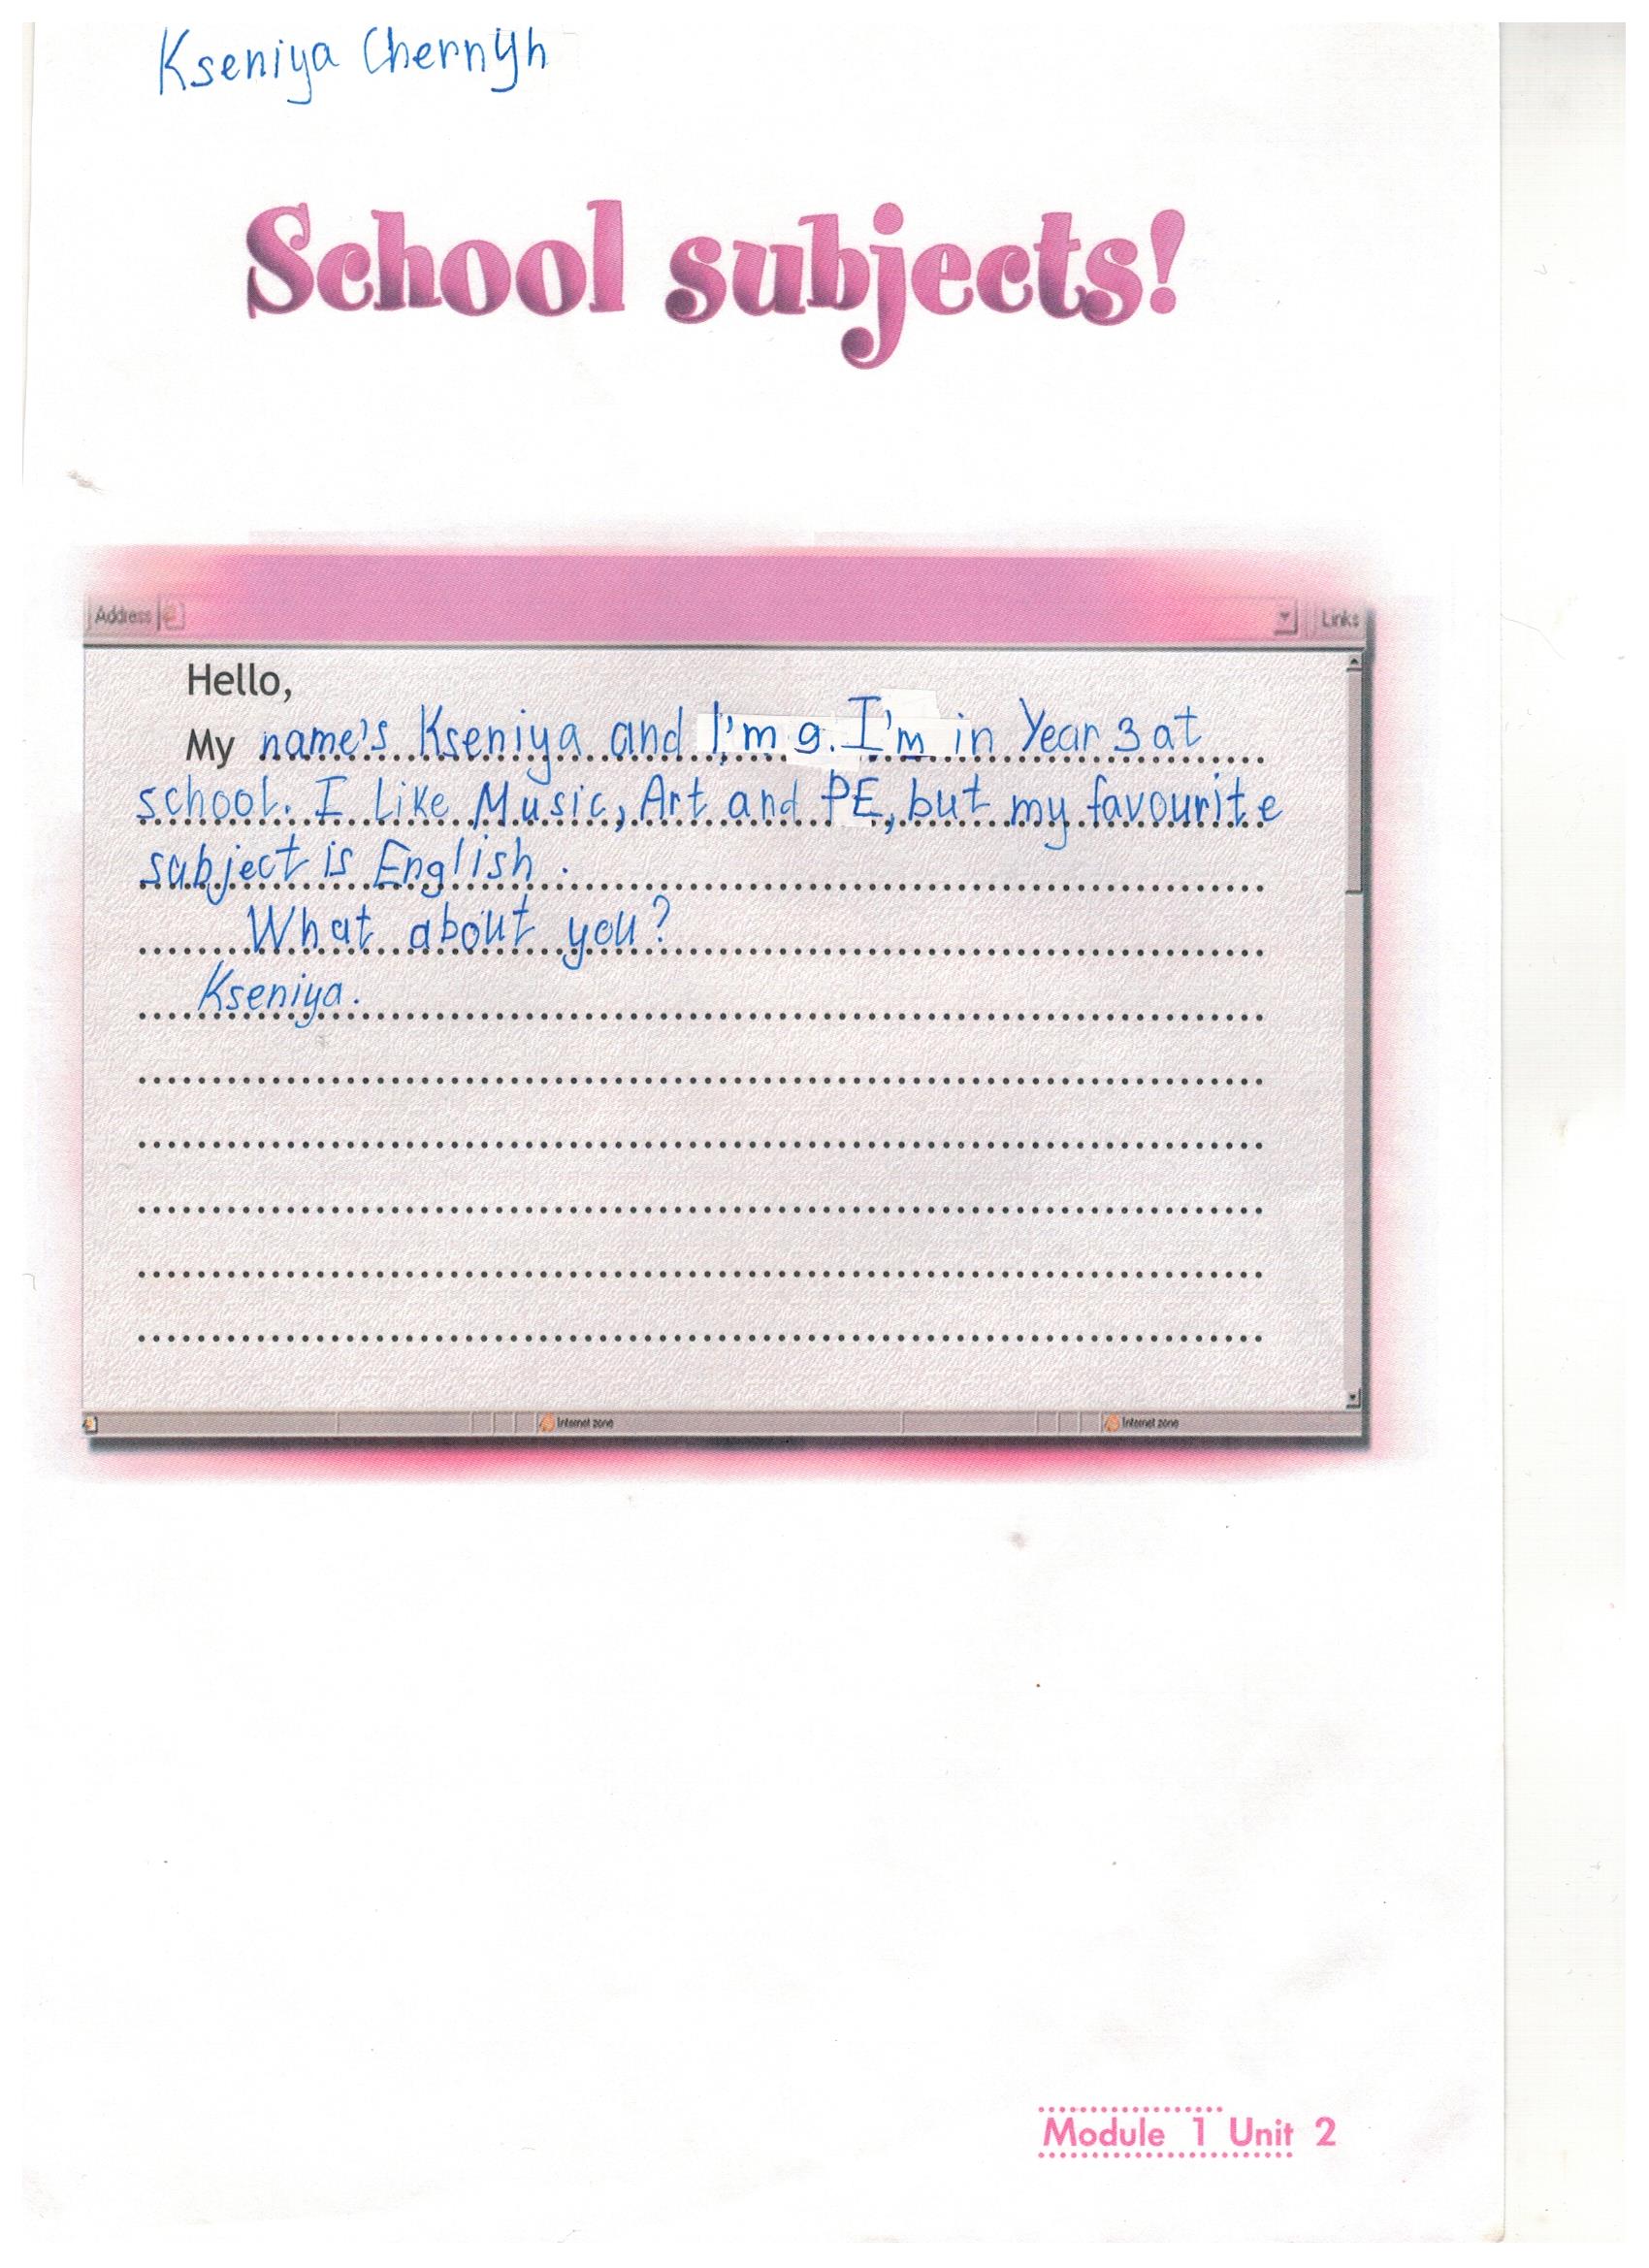 Kseniya Chernyh
School subjects!
Address
Links
Hello,
My name's Kseniya and I'm 9. I'm in Year 3 at
school. I like Music, Art and PE, but my favourite
subject is English.
What about you?
Kseniya.
Internet zone
Internet zone
Module 1 Unit 2